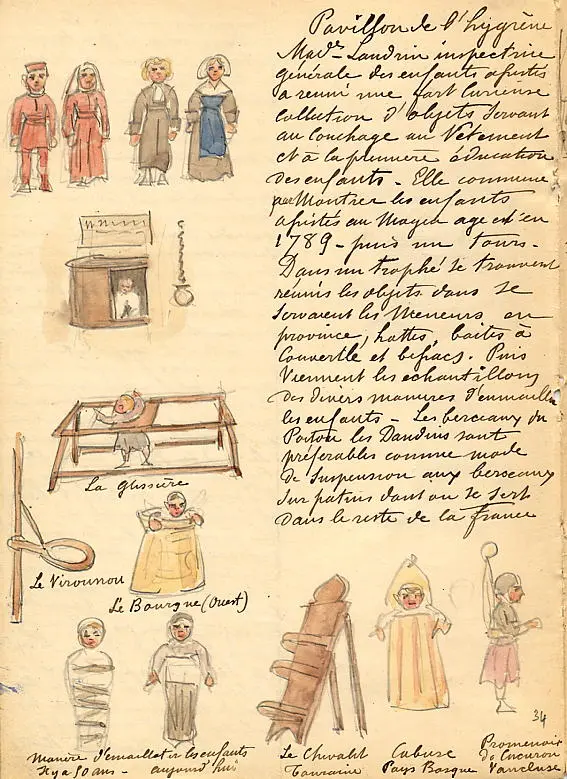 Pavillon de l'hygiène
Made Landrin inspectrice
générale des enfants assistés
a reuni une fort curieuse
collection d'objets servant
au couchage au Vêtement
et à la première éducation
des enfants - Elle commence
par Montrer les enfants
assistés au Moyen age et en
1789 - puis un tours -
Dans un trophé se trouvent
réunis les objets dans se
servaient les Meneurs en
province, hottes, boites à
Couvercle et besacs. Puis
Viennent les echantillons
des divers manieres d'emmailler
les enfants - Les berceaux du
Poitou les Dandins sont
préférables comme mode
de suspension aux berceaux
sur patins dont on se sert
dans le reste de la france
La glissière
Le Virounou
Le Bourgne (Ouest)
Manière d'emailloter les enfants
il y a 50 ans - aujourd'hui
Le Chevalet
Touraine
Cabuse
Pays Basque
Promenoir
de Cucuron
Vaucluse
34